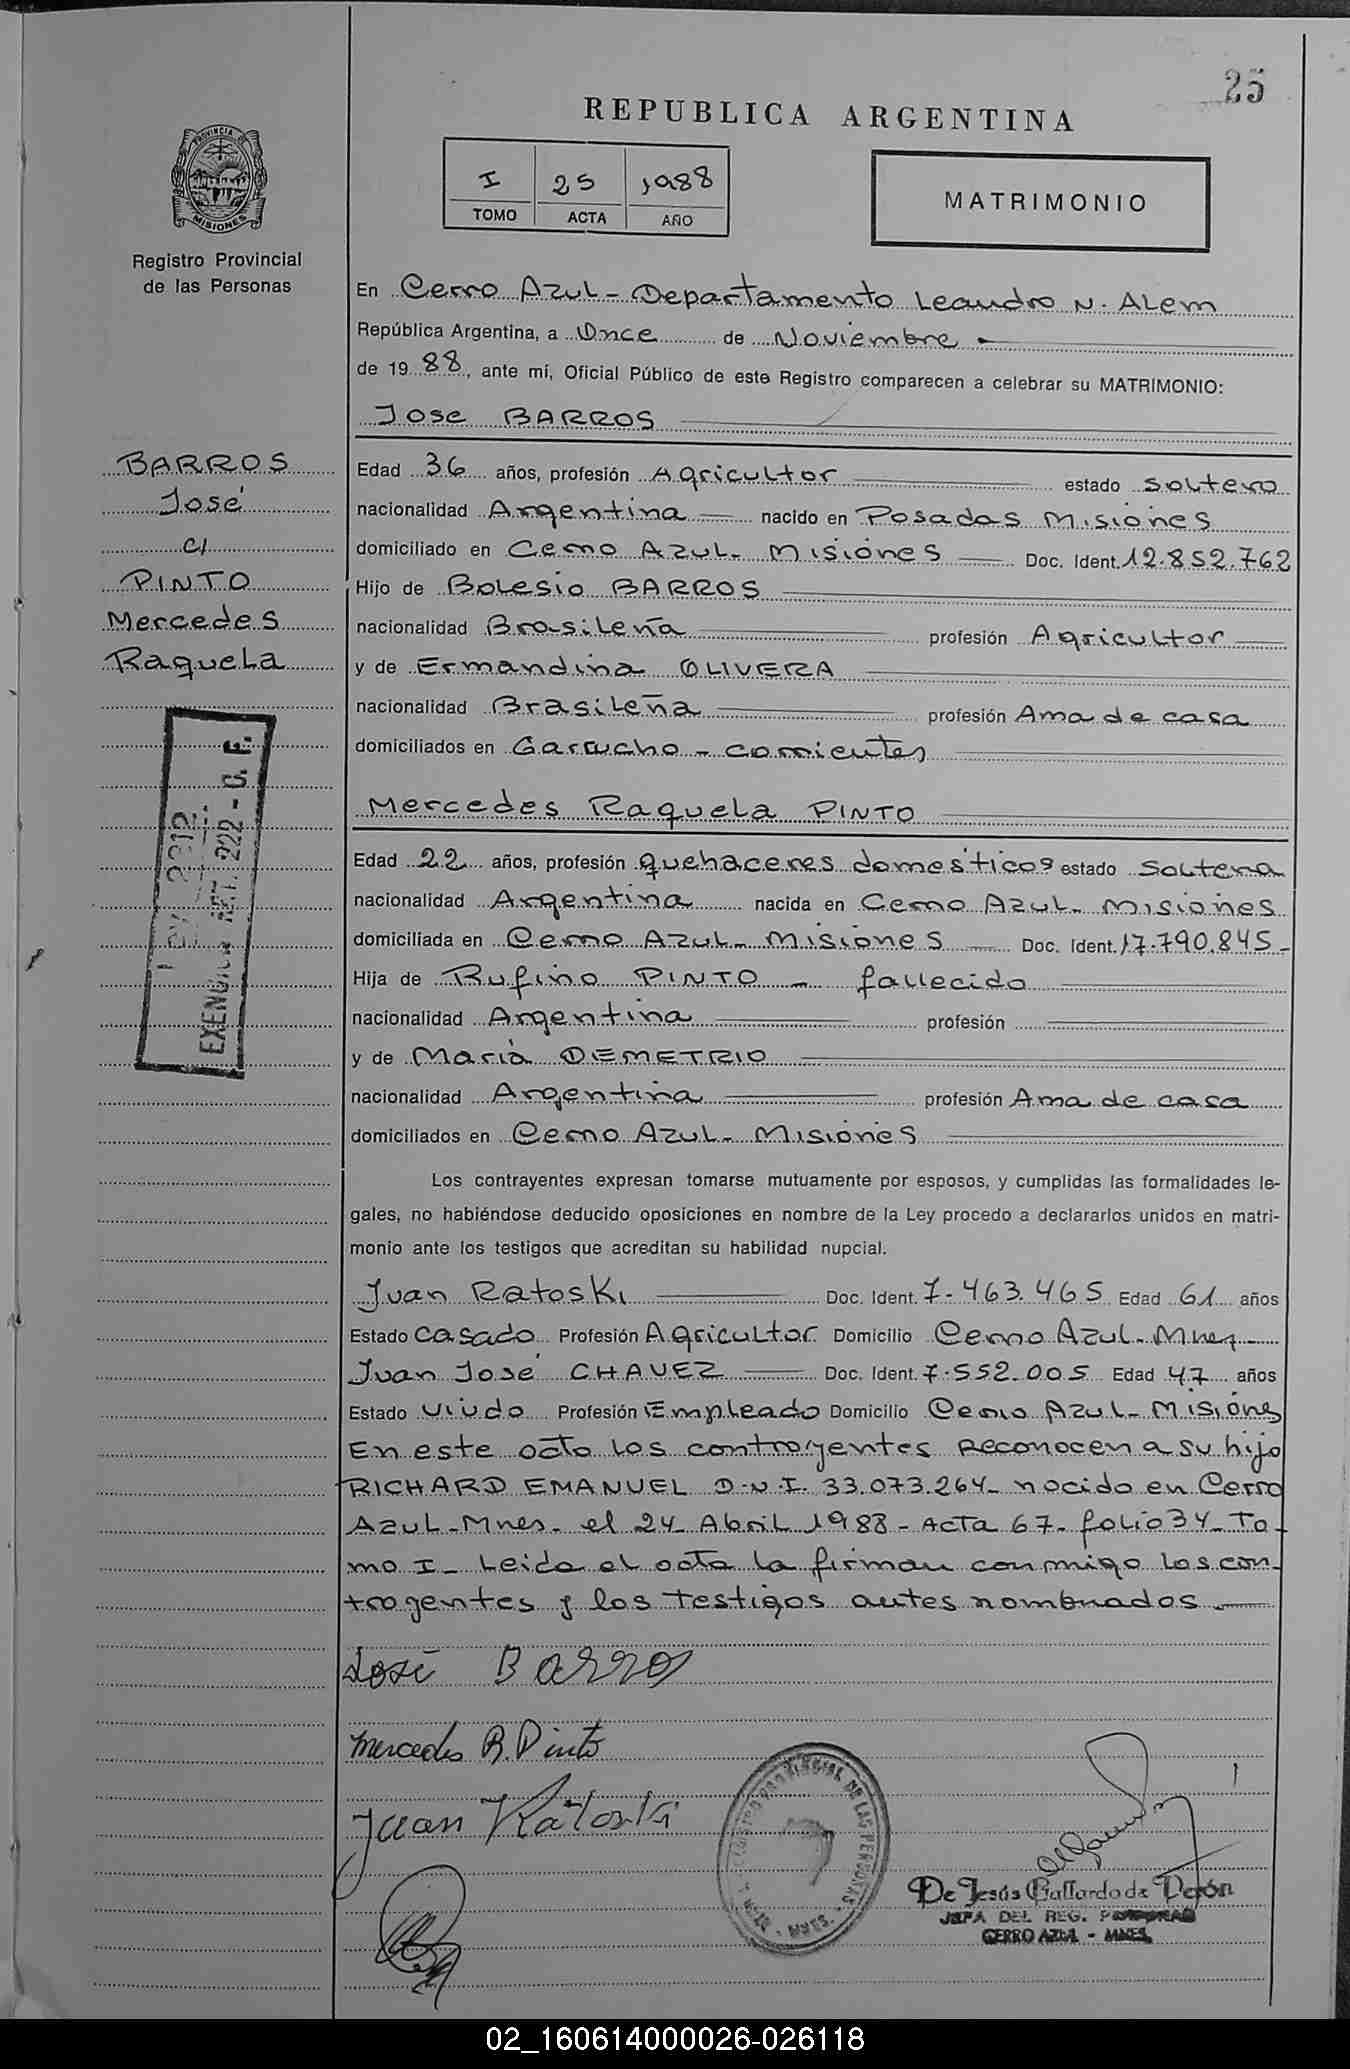 25
REPUBLICA ARGENTINA
PROVINCIA DE
MISIONES
Registro Provincial
de las Personas
I 25 1988
TOMO ACTA AÑO
MATRIMONIO
En Cerro Azul - Departamento Leandro N. Alem
República Argentina, a Once de Noviembre
de 1988, ante mí, Oficial Público de este Registro comparecen a celebrar su MATRIMONIO:
Jose BARROS
BARROS
José
c/
PINTO
Mercedes
Raquela
Edad 36 años, profesión Agricultor estado soltero
nacionalidad Argentina nacido en Posadas Misiones
domiciliado en Cerro Azul - Misiones Doc. Ident. 12.852.762
Hijo de Bolesio BARROS
nacionalidad Brasileña profesión Agricultor
y de Ermandina OLIVERA
nacionalidad Brasileña profesión Ama de casa
domiciliados en Garrucho - corrientes
Mercedes Raquela PINTO
Edad 22 años, profesión quehaceres domésticos estado soltera
nacionalidad Argentina nacida en Cerro Azul - Misiones
domiciliada en Cerro Azul - Misiones Doc. Ident. 17.790.845-
Hija de Rufino PINTO - fallecido
nacionalidad Argentina profesión
y de María DEMETRIO
nacionalidad Argentina profesión Ama de casa
domiciliados en Cerro Azul - Misiones
EXENCION 222 - C. F.
Los contrayentes expresan tomarse mutuamente por esposos, y cumplidas las formalidades le-
gales, no habiéndose deducido oposiciones en nombre de la Ley procedo a declararlos unidos en matri-
monio ante los testigos que acreditan su habilidad nupcial.
Juan Ratoski Doc. Ident. 7.463.465 Edad 61 años
Estado casado Profesión Agricultor Domicilio Cerro Azul - Mnes
Juan José CHAVEZ Doc. Ident. 7.552.005 Edad 47 años
Estado viudo Profesión Empleado Domicilio Cerro Azul - Misiones
En este acto los contrayentes reconocen a su hijo
RICHARD EMANUEL D.N.I. 33.073.264- nacido en Cerro
Azul - Mnes - el 24 Abril 1988 - Acta 67 - folio 34 - To-
mo I - Leida el acta la firman conmigo los con-
trayentes y los testigos antes nombrados
José Barros
Mercedes R. Pinto
Juan Ratoski
REGISTRO PROVINCIAL DE LAS PERSONAS - MNES.
De Jesús Gallardo de Perón
JEFA DEL REG. PERSONAS
CERRO AZUL - MNES.
02_160614000026-026118